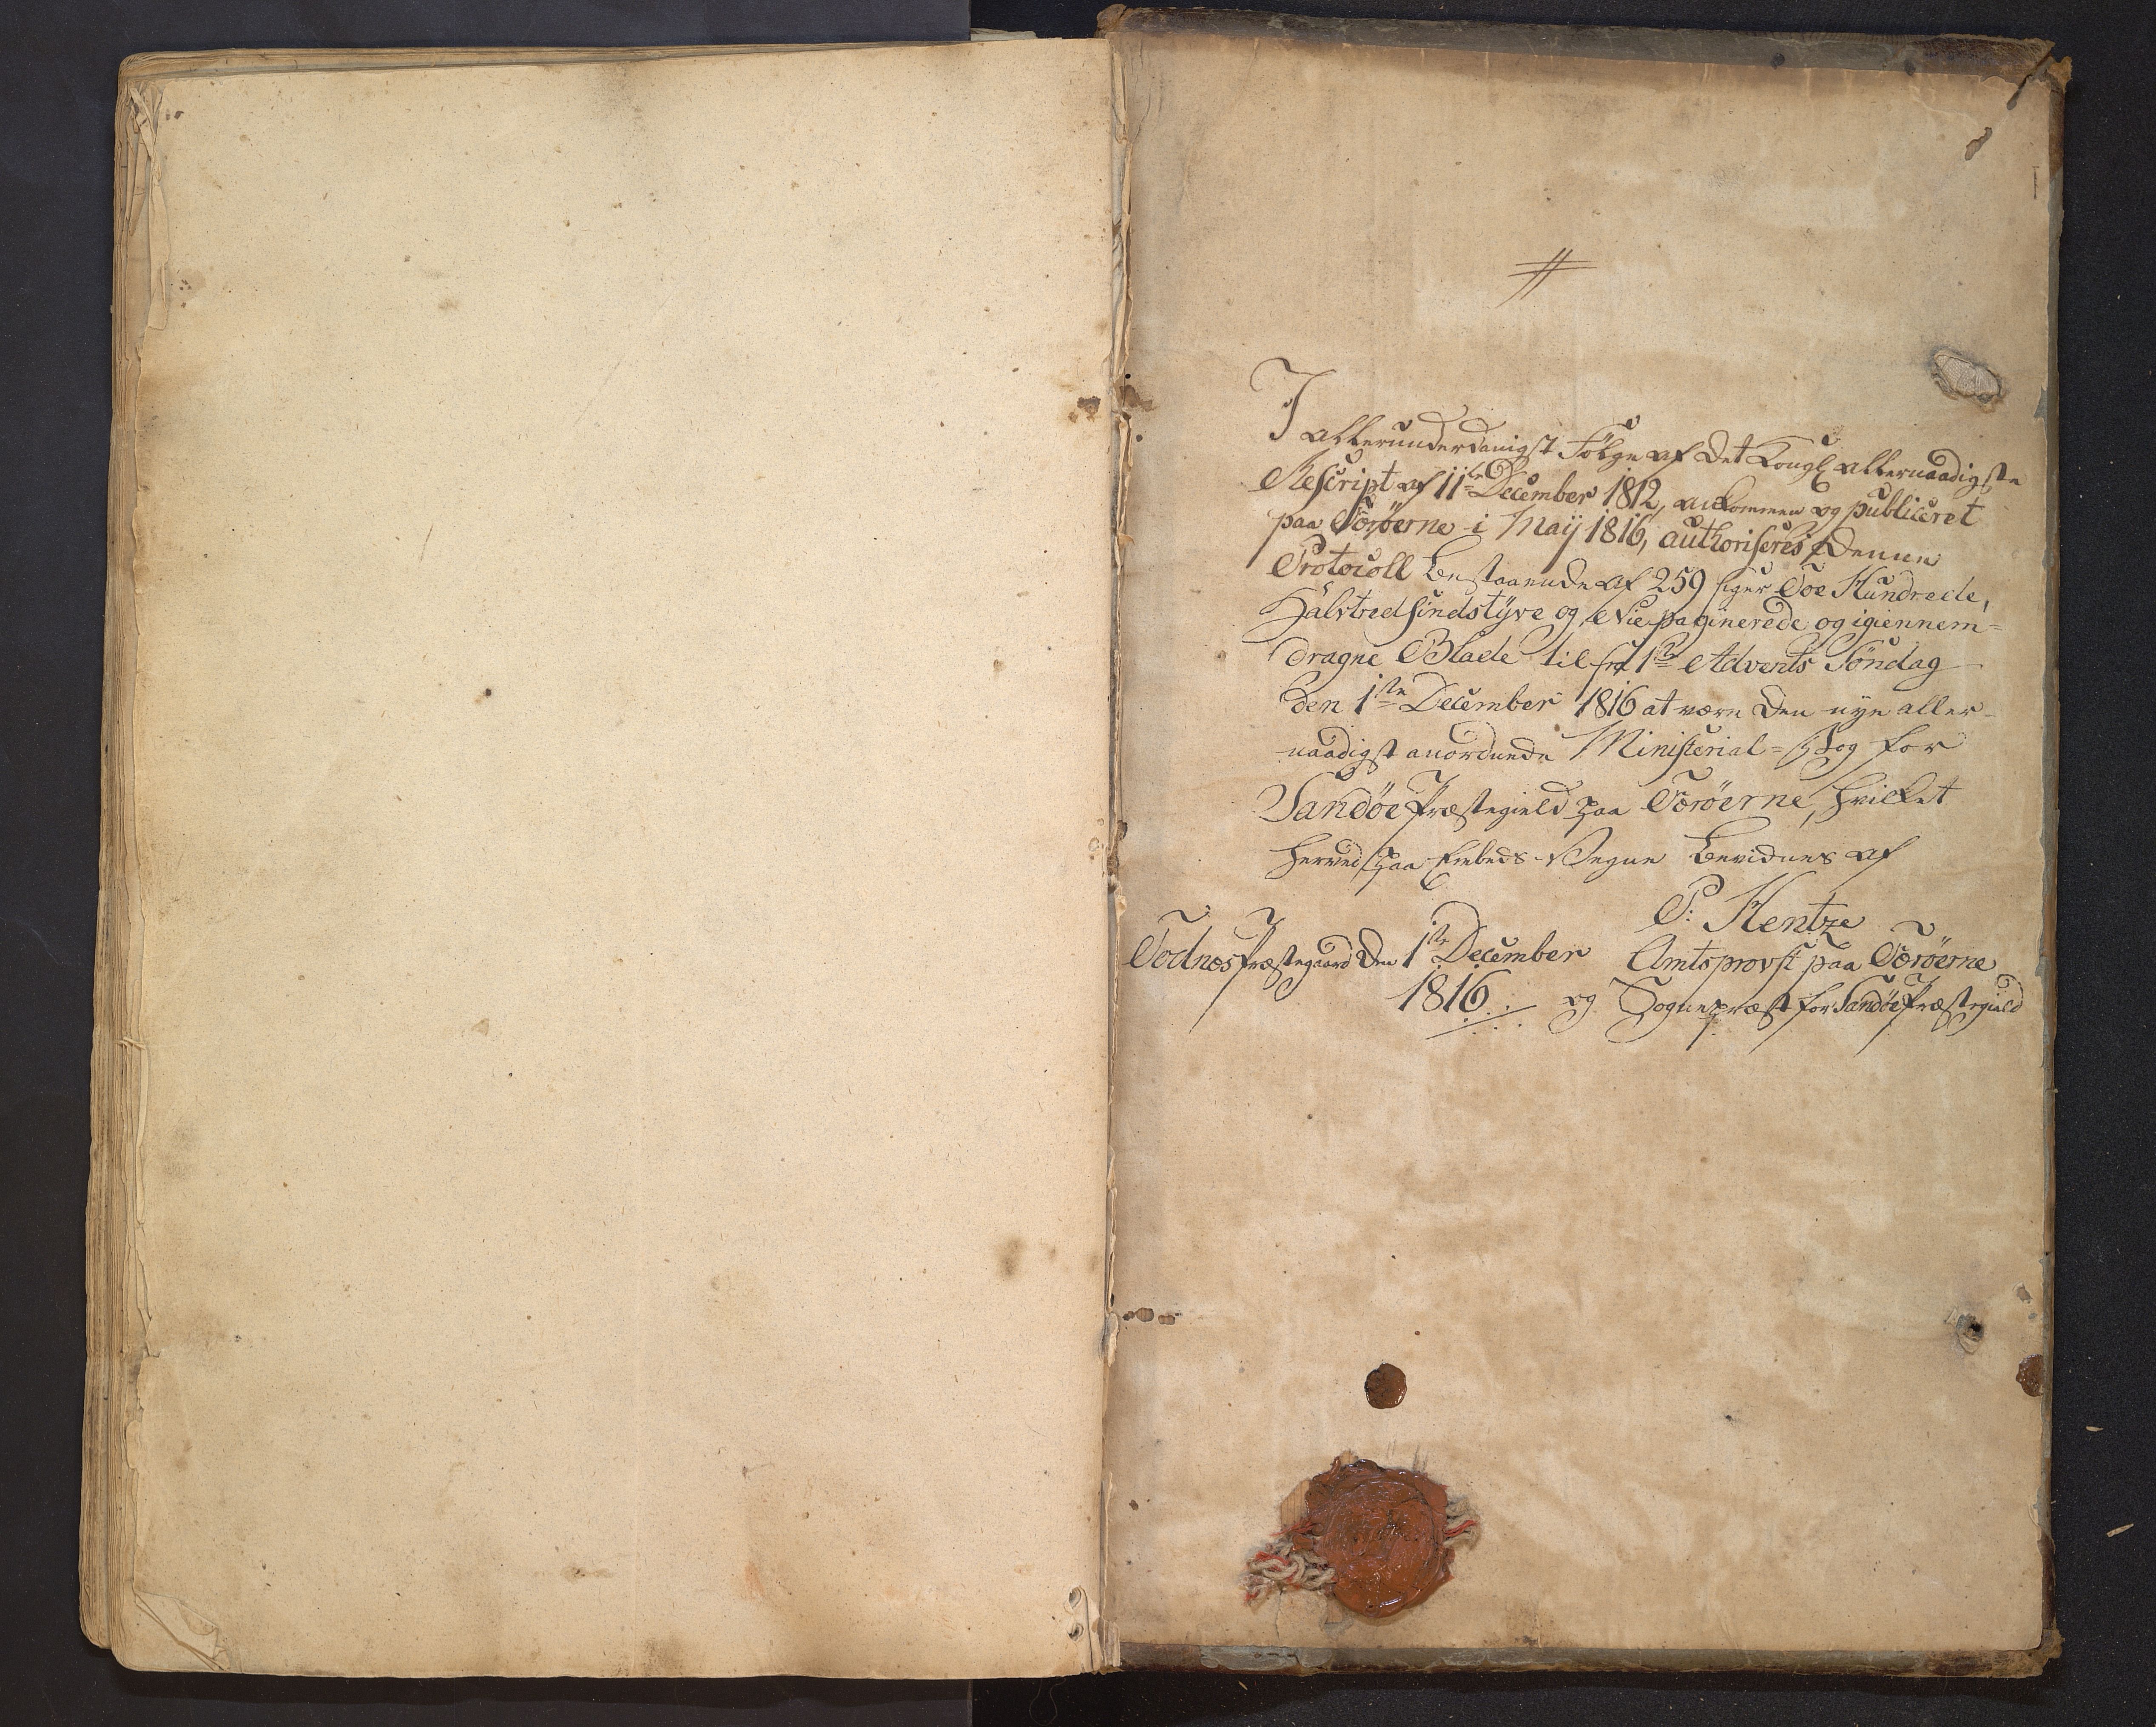 I allerunderdanigst Fölge af det Kongl allernaadigste
Rescript af 11te December 1812, ankommen og publiceret
paa Færöerne i Maij 1816, authoriseres denne
Protocoll bestaaende af 259 siger Toe Hundrede,
Halvtredsindstÿve og Nie paginerede og igiennem=
dragne Blade til fra 1ste Advents Söndag
den 1ste December 1816 at være den nye aller=
naadigst anordnede Ministerial=Bog for
Sandöe Præstegield paa Færöerne, hvilket
herved paa Embeds Vegne bevidnes af
P: Hentze
Todnæs Præstegaard den 1ste December Amtsprovst paa Færöerne
1816 og Sognepræst for Sandöe Præstegield